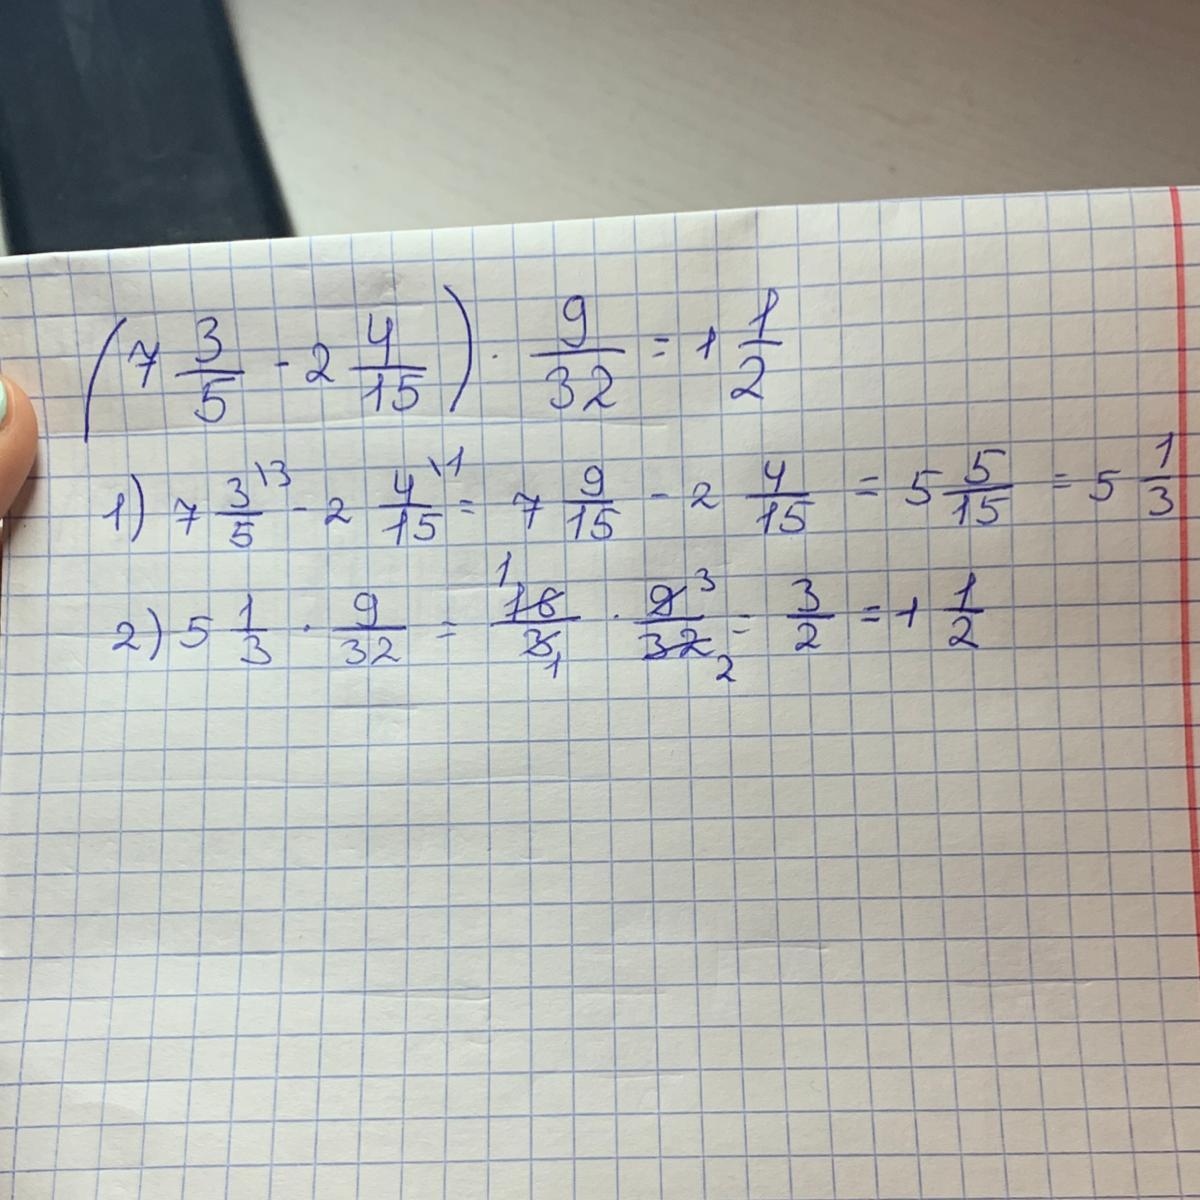 (7 3/5 - 2 4/15) · 9/32 = 1 1/2
1) 7 3/5 \3 - 2 4/15 \1 = 7 9/15 - 2 4/15 = 5 5/15 = 5 1/3
2) 5 1/3 · 9/32 = 1 16/3 1 · 9 3/32 2 = 3/2 = 1 1/2